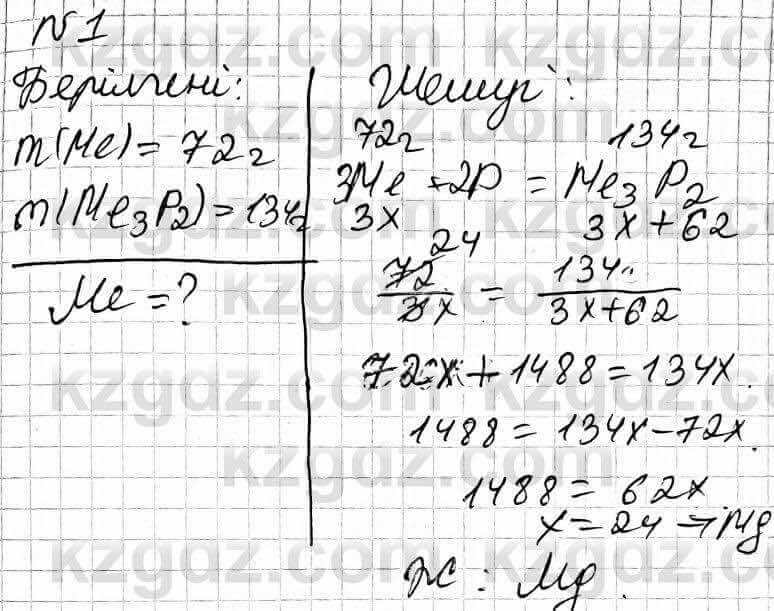 №1
Берілгені:
m(Me) = 72г
m(Me₃P₂) = 134г
Me = ?
Шешуі:
72г 134г
3Me + 2P = Me₃P₂
3x 3x+62
24
72/3x = 134/3x+62
72x + 1488 = 134x.
1488 = 134x - 72x.
1488 = 62x
x = 24 → Mg
Ж: Mg.
kzgdz.com